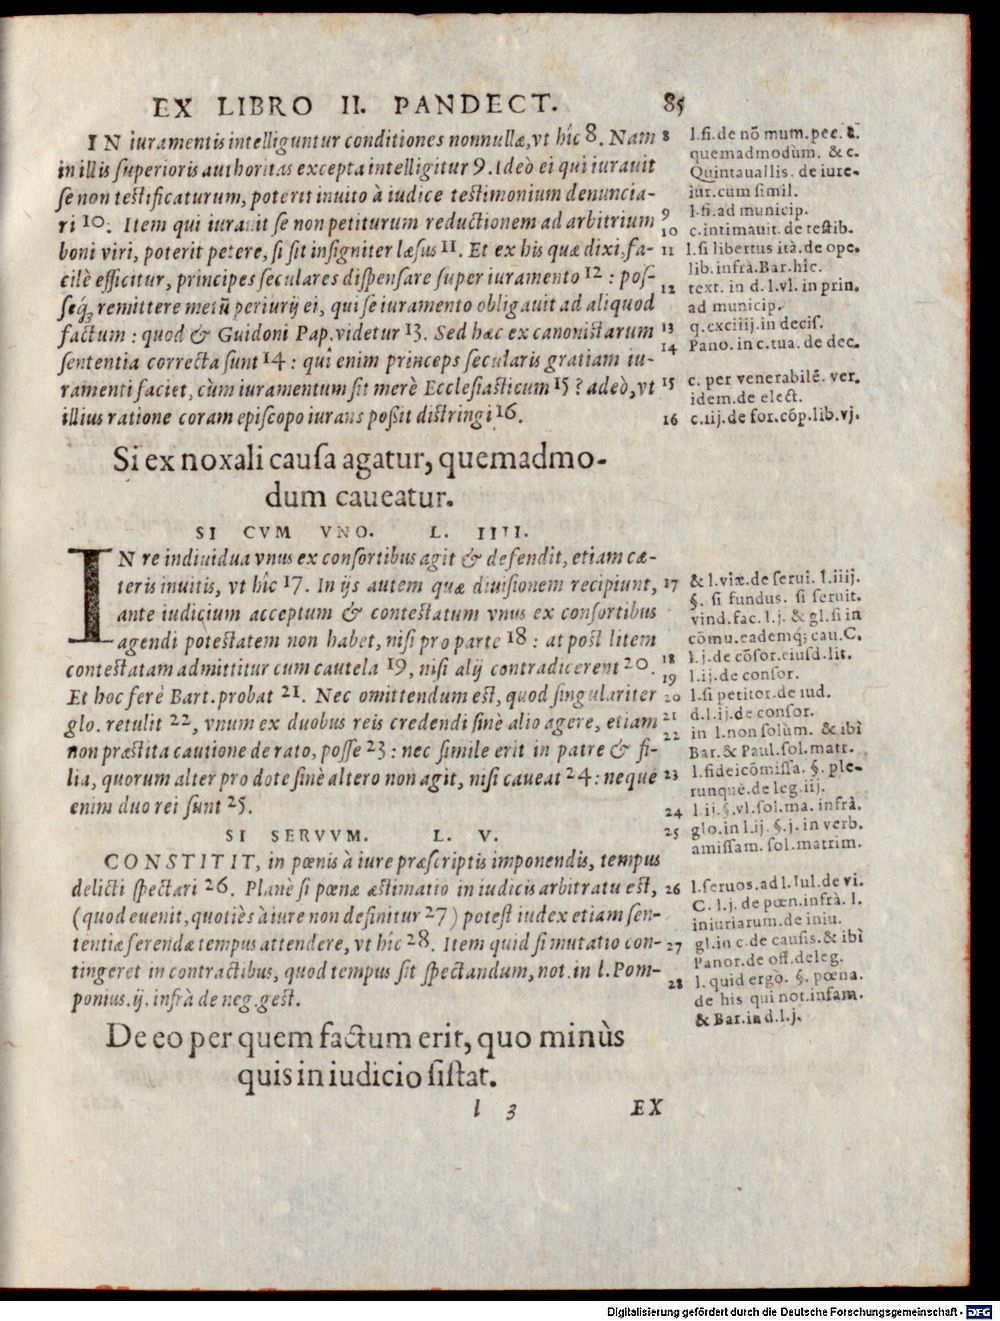 EX LIBRO II. PANDECT. 85
IN iuramentis intelliguntur conditiones nonnullæ, vt hîc 8. Nam
in illis superioris authoritas excepta intelligitur 9. Ideò ei qui iurauit
se non testificaturum, poterit inuito à iudice testimonium denuncia-
ri 10. Item qui iurauit se non petiturum reductionem ad arbitrium
boni viri, poterit petere, si sit insigniter læsus 11. Et ex his quæ dixi, fa-
cilè efficitur, principes seculares dispensare super iuramento 12 : pos-
seq́ꝫ remittere metū periurij ei, qui se iuramento obligauit ad aliquod
factum : quod & Guidoni Pap. videtur 13. Sed hæc ex canonistarum
sententia correcta sunt 14 : quî enim princeps secularis gratiam iu-
ramenti faciet, cùm iuramentum sit merè Ecclesiasticum 15 ? adeò, vt
illius ratione coram episcopo iurans possit distringi 16.
8 l.fi.de nō mum.pec. &
quemadmodùm. & c.
Quintauallis. de iure-
iur.cum simil.
9 l.fi.ad municip.
10 c.intimauit. de testib.
11 l.si libertus ità.de ope.
lib.infrà.Bar.hîc.
12 text. in d.l.vl.in prin.
ad municip.
13 q.cxciiij.in decis.
14 Pano.in c.tua.de dec.
15 c. per venerabilē. ver.
idem.de elect.
16 c.iij.de for.cōp.lib.vj.
Si ex noxali causa agatur, quemadmo-
dum caueatur.
SI CVM VNO. L. IIII.
IN re indiuidua vnus ex consortibus agit & defendit, etiam cæ-
teris inuitis, vt hîc 17. In ijs autem quæ diuisionem recipiunt,
ante iudicium acceptum & contestatum vnus ex consortibus
agendi potestatem non habet, nisi pro parte 18 : at post litem
contestatam admittitur cum cautela 19, nisi alij contradicerent 20.
Et hoc ferè Bart. probat 21. Nec omittendum est, quod singulariter
glo. retulit 22, vnum ex duobus reis credendi sinè alio agere, etiam
non præstita cautione de rato, posse 23 : nec simile erit in patre & fi-
lia, quorum alter pro dote sinè altero non agit, nisi caueat 24 : neque
enim duo rei sunt 25.
17 & l.viæ.de serui. l.iiij.
§. si fundus. si seruit.
vind.fac.l.j. & gl.fi in
cōmu.eademq; cau.C.
18 l.j.de cōsor.eiusd.lit.
19 l.ij.de consor.
20 l.si petitor.de iud.
21 d.l.ij.de consor.
22 in l.non solùm. & ibì
Bar.& Paul.sol.matr.
23 l.fideicōmissa. §. ple-
runque.de leg.iij.
24 l.ij.§.vl.sol.ma. infrà.
25 glo.in l.ij. §.j. in verb.
amissam. sol.matrim.
SI SERVVM. L. V.
CONSTITIT, in pœnis à iure præscriptis imponendis, tempus
delicti spectari 26. Planè si pœnæ æstimatio in iudicis arbitratu est,
(quod euenit, quotiès à iure non definitur 27) potest iudex etiam sen-
tentiæ ferendæ tempus attendere, vt hîc 28. Item quid si mutatio con-
tingeret in contractibus, quod tempus sit spectandum, not. in l. Pom-
ponius. ij. infrà de neg. gest.
26 l.seruos.ad l.Iul.de vi.
C. l.j. de pœn.infrà. l.
iniuriarum.de iniu.
27 gl.in c.de causis.& ibì
Panor.de off.deleg.
28 l. quid ergò. §. pœna.
de his qui not.infam.
& Bar.in d.l.j.
De eo per quem factum erit, quo minùs
quis in iudicio sistat.
l 3 EX
Digitalisierung gefördert durch die Deutsche Forschungsgemeinschaft - DFG